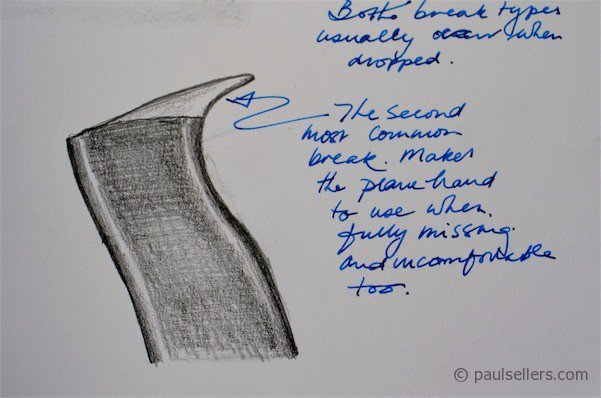 Both break types
usually occur when
dropped.
The second
most common
break. Makes
the plane hard
to use when
fully missing
and uncomfortable
too.
© paulsellers.com